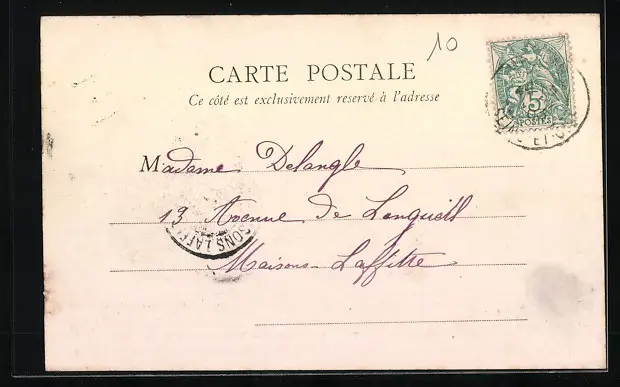 10
CARTE POSTALE
Ce côté est exclusivement reservé à l'adresse
5
POSTES
SEINE-ET-O
Madame Delangle
13 Avenue de Longueil
SONS LAFF
Maisons-Laffitte